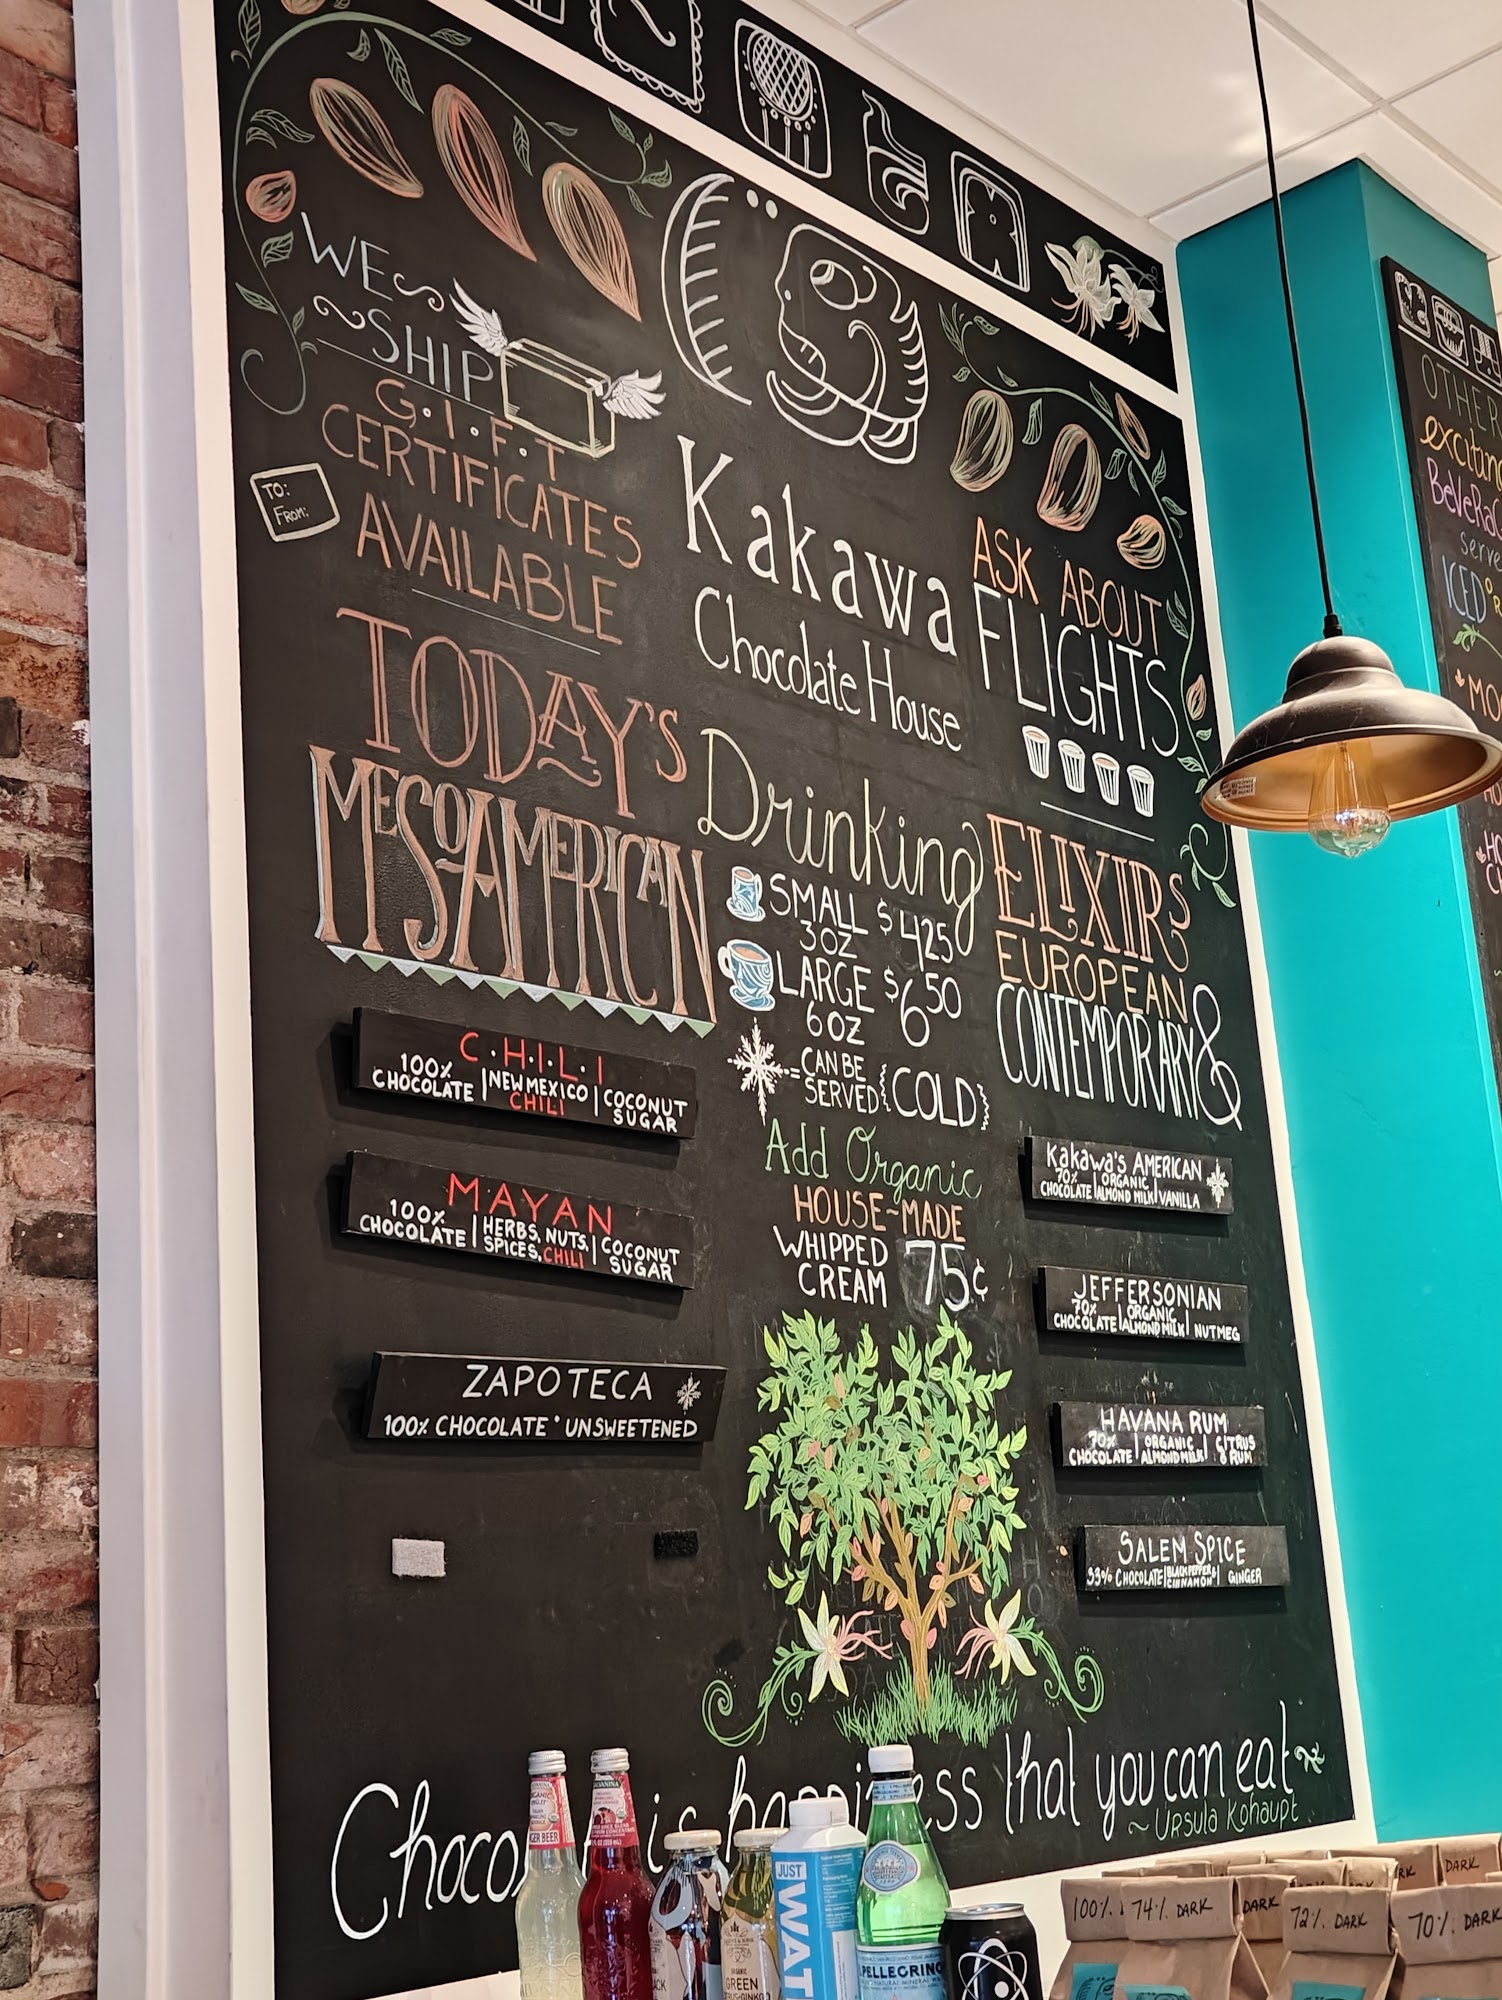 WE
SHIP
G.I.F.T
CERTIFICATES
AVAILABLE
TO:
FROM:
Kakawa
Chocolate House
ASK ABOUT
FLIGHTS
TODAY'S
MESOAMERICAN
Drinking
SMALL $4.25
3OZ
LARGE $6.50
6 OZ
= CAN BE
SERVED
COLD
Add Organic
HOUSE-MADE
WHIPPED
CREAM
75¢
ELIXIRS
EUROPEAN
CONTEMPORARY &
C.H.I.L.I
100%
CHOCOLATE | NEW MEXICO | COCONUT
CHILI SUGAR
MAYAN
100%
CHOCOLATE | HERBS, NUTS, | COCONUT
SPICES, CHILI SUGAR
ZAPOTECA
100% CHOCOLATE • UNSWEETENED
Kakawa's AMERICAN
70% ORGANIC
CHOCOLATE | ALMOND MILK | VANILLA
JEFFERSONIAN
70% ORGANIC
CHOCOLATE | ALMOND MILK | NUTMEG
HAVANA RUM
70% | ORGANIC | CITRUS
CHOCOLATE | ALMOND MILK | & RUM
SALEM SPICE
BLACK PEPPER &
CHOCOLATE | CINNAMON | GINGER
Choco is happiness that you can eat
~ Ursula Kohaupt
OTHER
exciting
Bevera
serve
ICED
MO
GER BEER
JUST
WAT
GREEN
PELLEGRINO
100% 74% DARK
DARK
72% DARK
70% DARK
RK
DARK